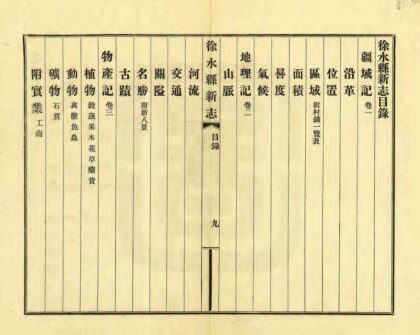 徐水縣新志目錄
疆域記 卷一
沿革
位置
區域 附村鎮一覽表
面積
晷度
氣候
地理記 卷二
山脈
徐水縣新志 目錄 九
河流
交通
關隘
名勝 附新八景
古蹟
物產記 卷三
植物 穀蔬果木花草藥貨
動物 禽獸魚蟲
礦物 石質
附實業 工商